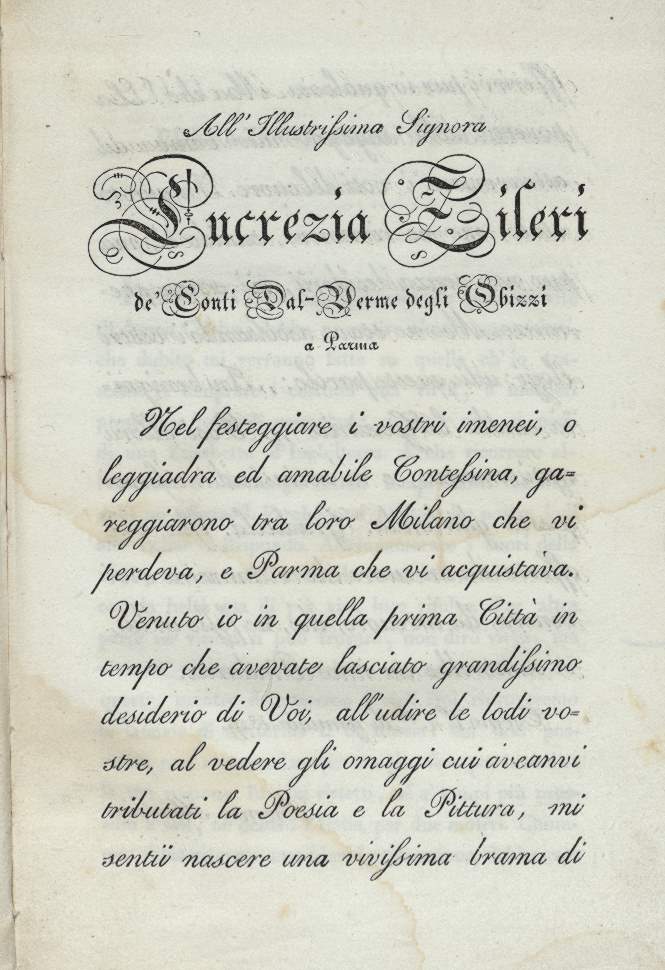 All' Illustrissima Signora
Lucrezia Tileri
de' Conti Dal-Verme degli Obizzi
a Parma
Nel festeggiare i vostri imenei, o
leggiadra ed amabile Contessina, ga=
reggiarono tra loro Milano che vi
perdeva, e Parma che vi acquistava.
Venuto io in quella prima Città in
tempo che avevate lasciato grandissimo
desiderio di Voi, all'udire le lodi vo=
stre, al vedere gli omaggi cui aveanvi
tributati la Poesia e la Pittura, mi
sentii nascere una vivissima brama di